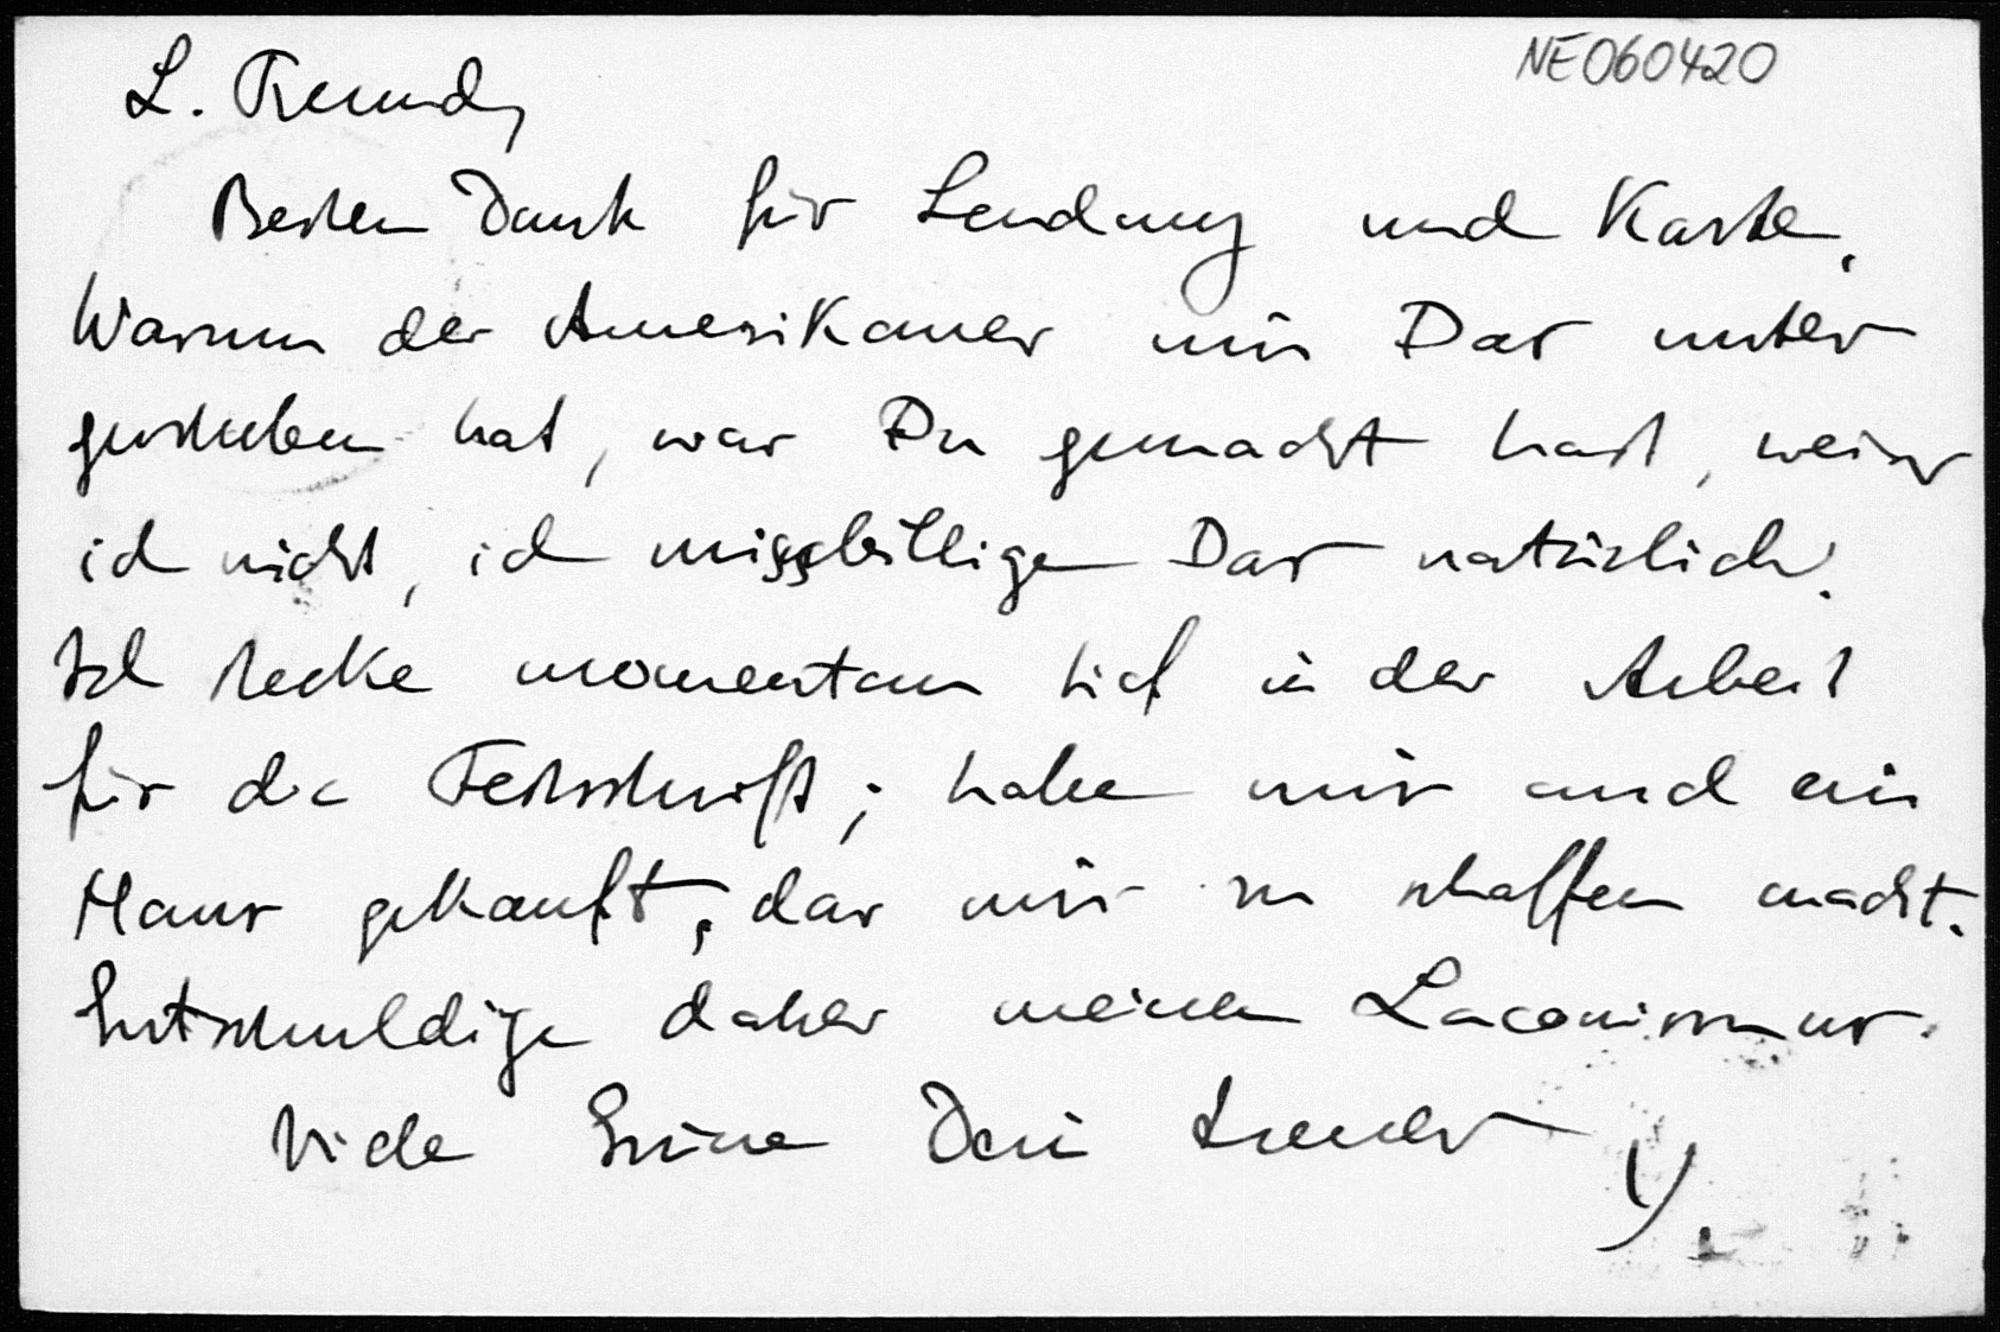 NE060420
L. Freund,
Besten Dank für Sendung und Karte.
Warum der Amerikaner mir Das unter
geschoben hat, was Du gemacht hast, weiss
ich nicht, ich missbillige Das natürlich.
Ich stecke momentan tief in der Arbeit
für die Festschrift; habe mir auch ein
Haus gekauft, das mir zu schaffen macht.
Entschuldige daher meinen Laconismus.
Viele Grüsse Dein treuer
Y.